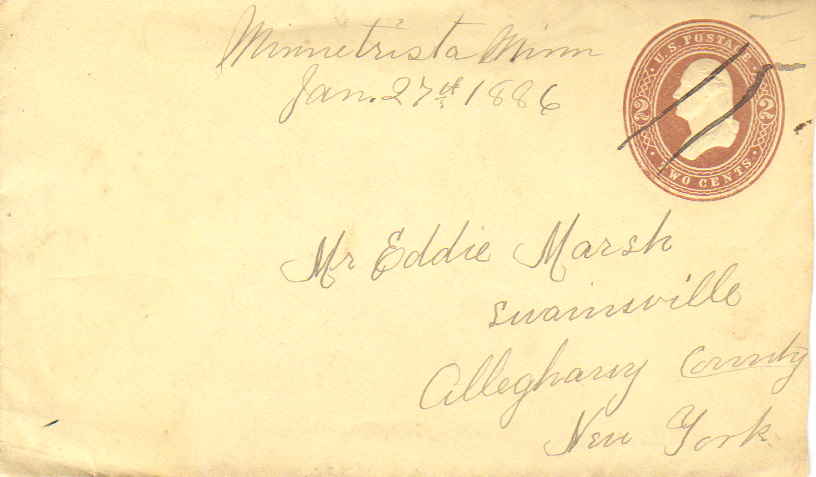 Minnetrista Minn
Jan. 27th 1886
U.S. POSTAGE
2 2
TWO CENTS
Mr Eddie Marsh
Swainsville
Alleghany County
New York